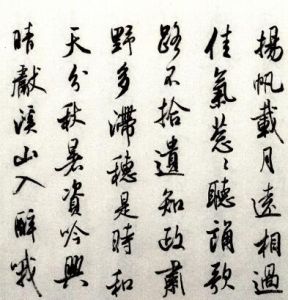 揚帆載月遠相過
佳氣葱〻聽誦歌
路不拾遺知政肅
野多滯穗是時和
天分秋暑資吟興
晴獻溪山入醉哦